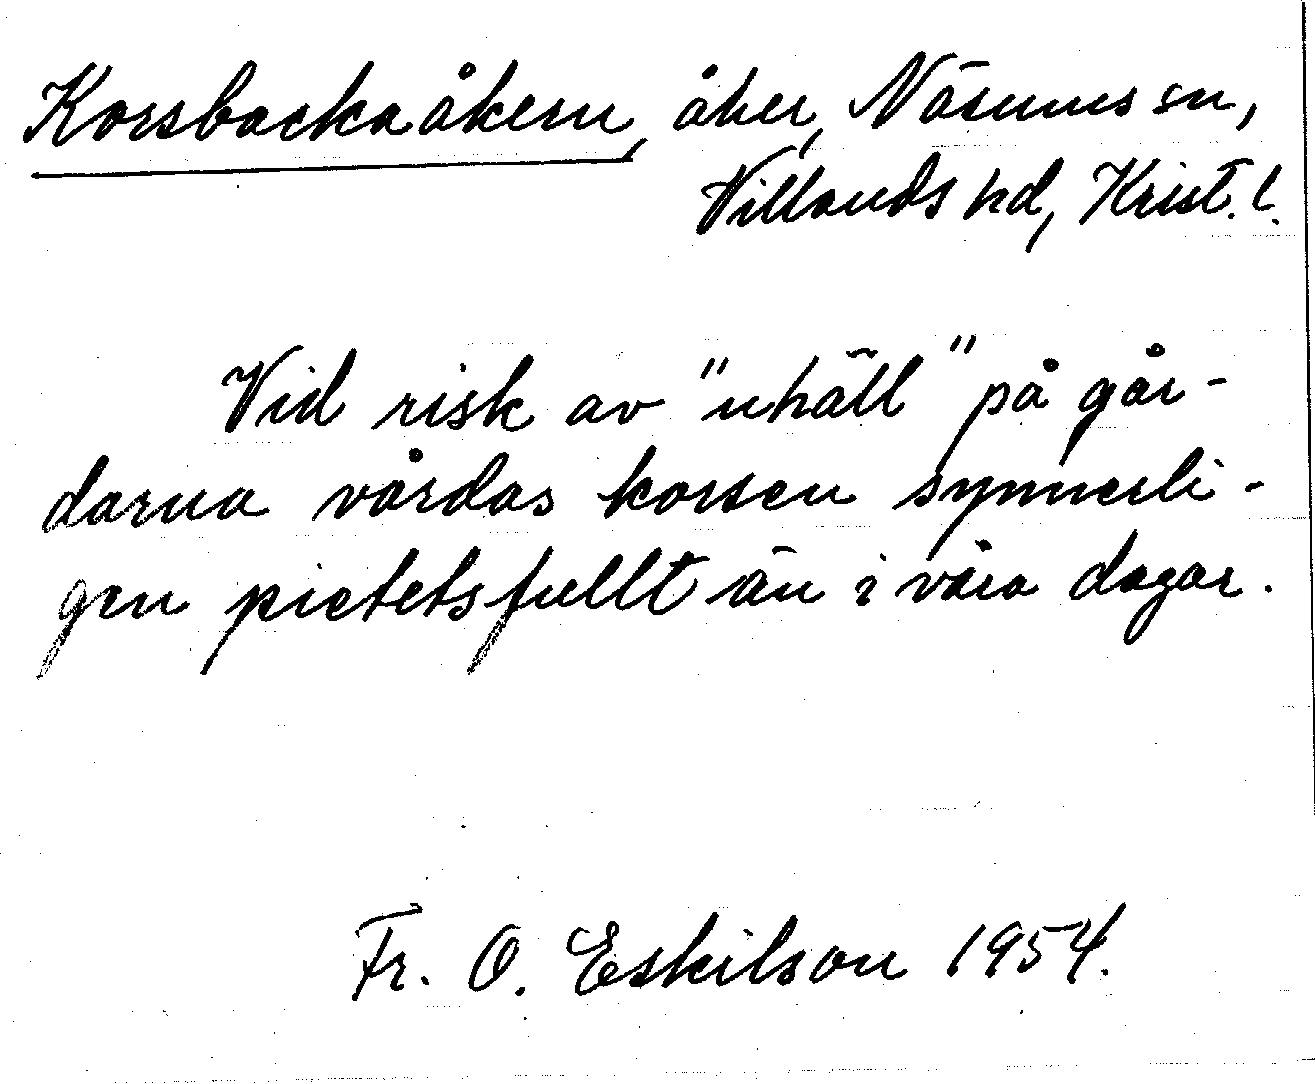 Korsbackaåkern, åker, Näsums sn,
Villands hd, Krist. l.
Vid risk av "uhäll" på går-
darna vårdas korsen synnerli-
gen pietetsfullt än i våra dagar.
Fr. O. Eskilson 1954.